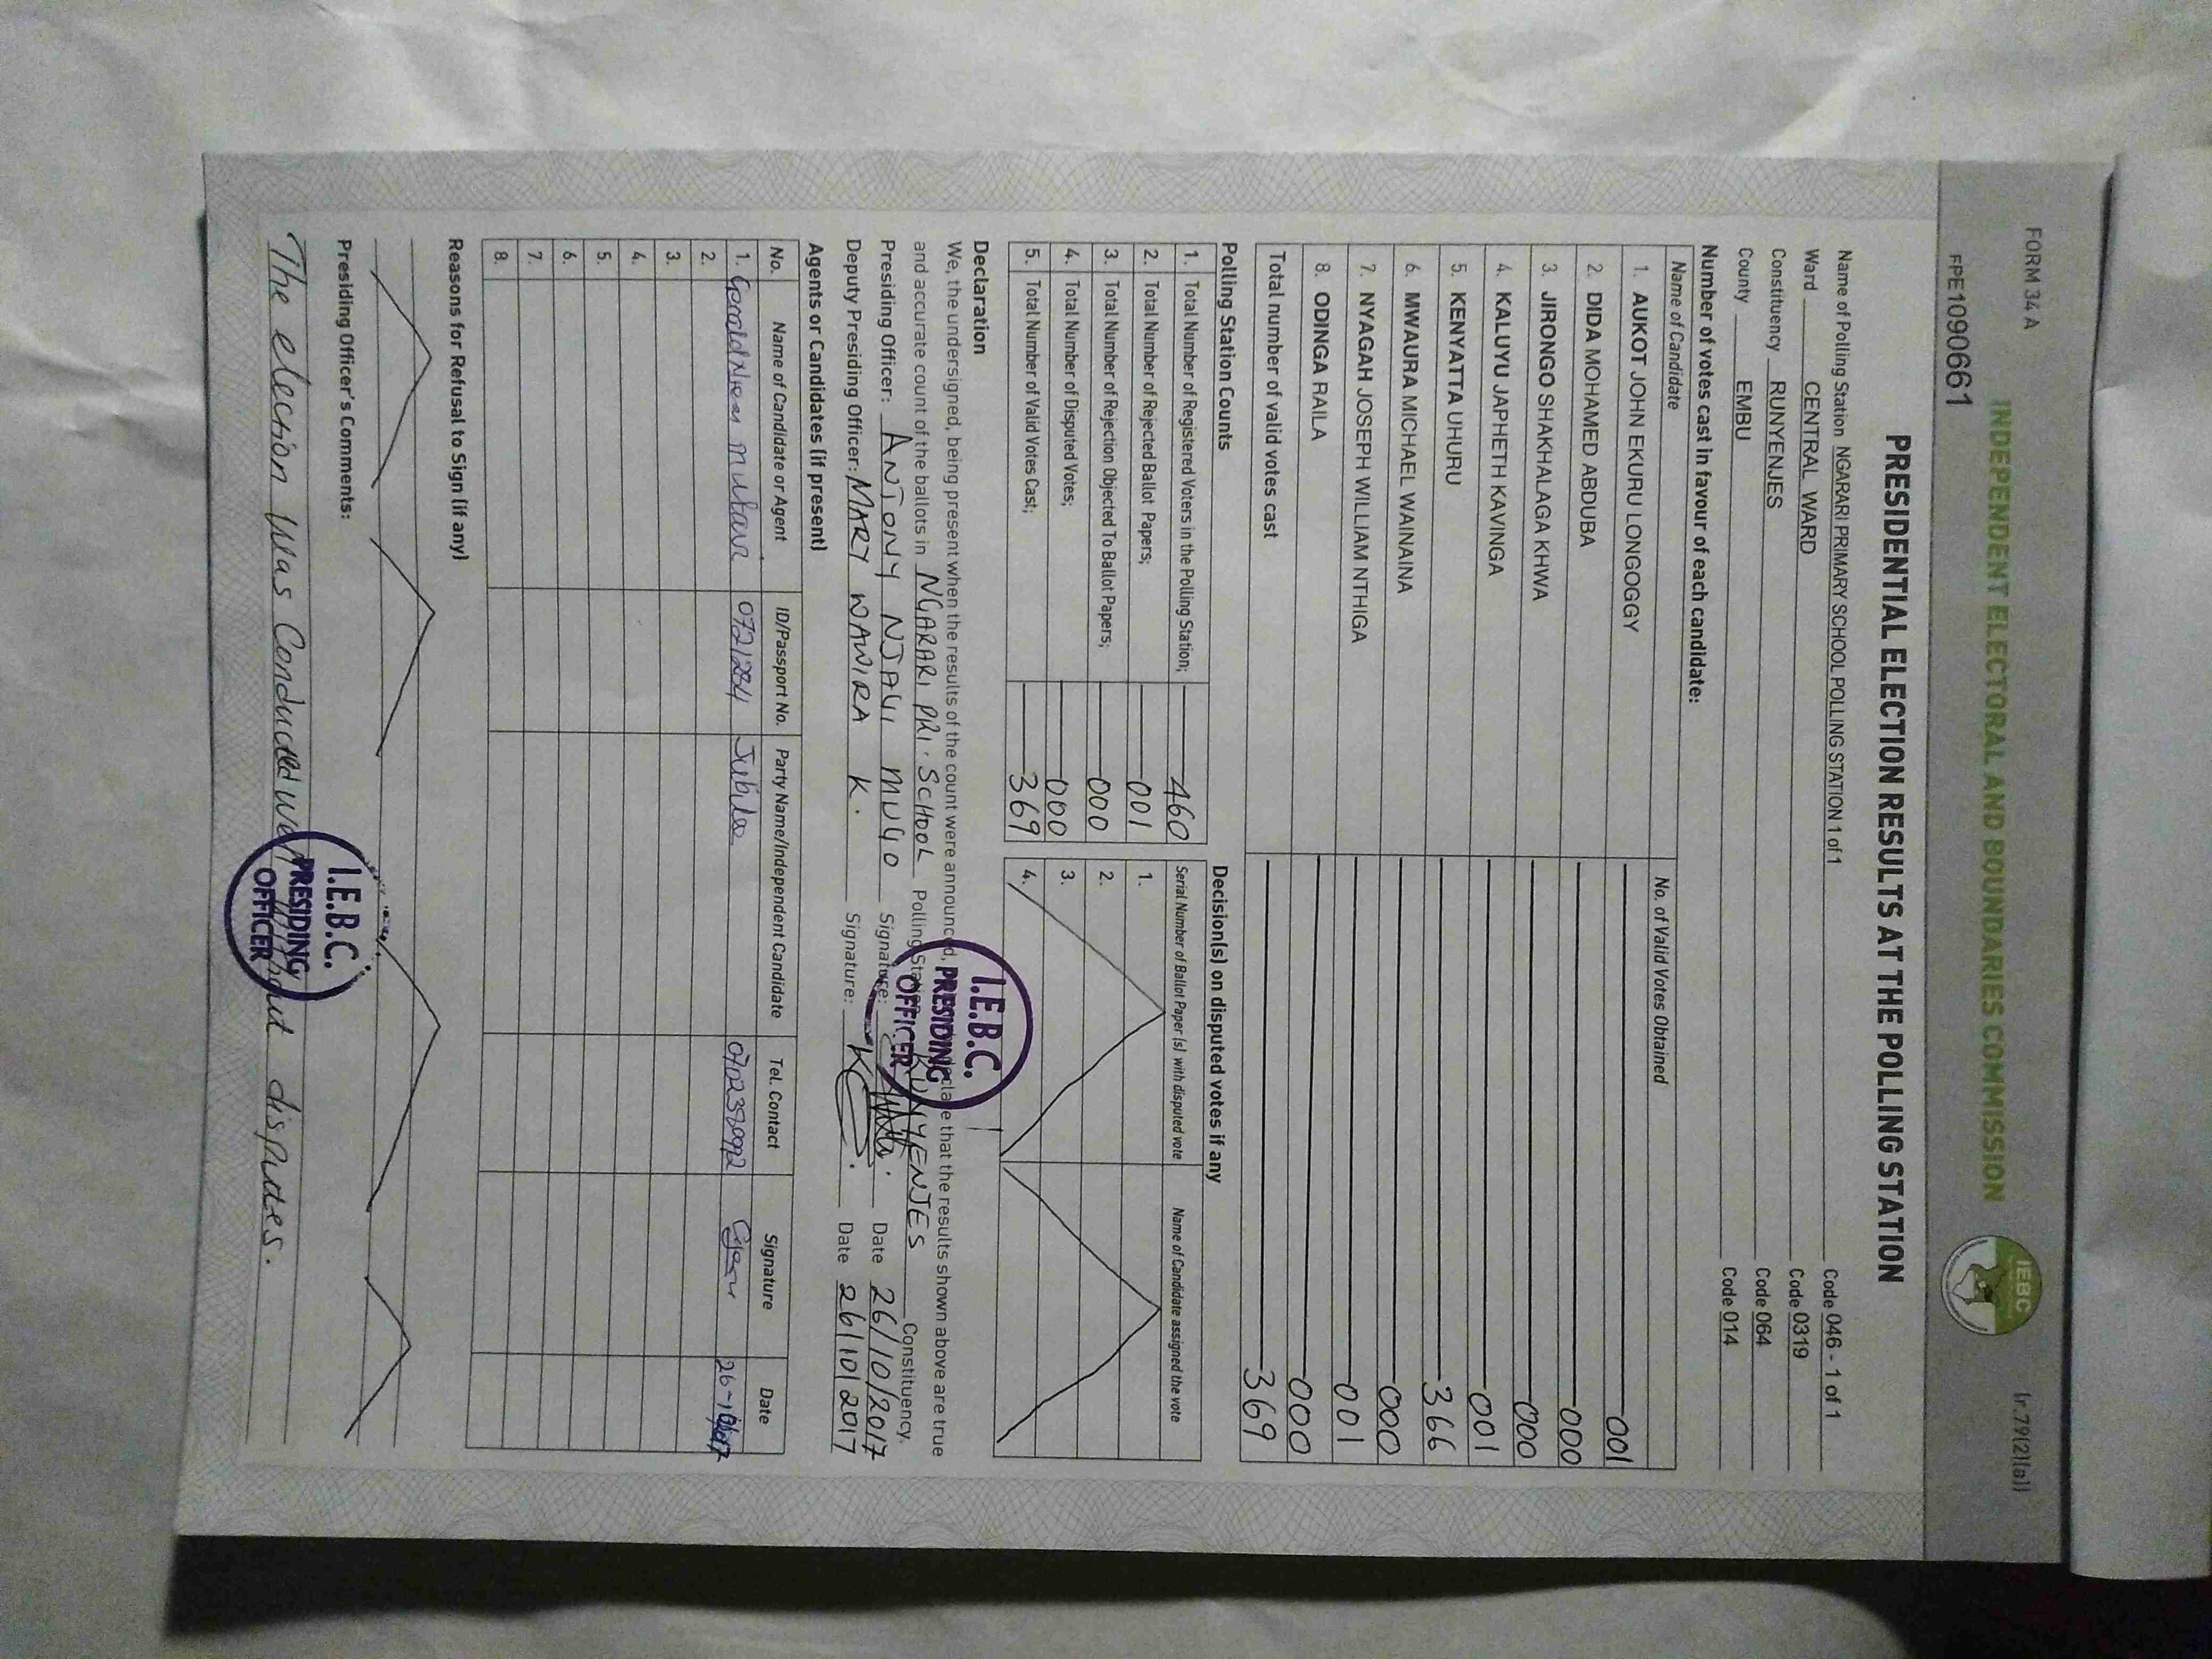 FORM 34 A
Ir 79(2)(a))
INDEPENDENT ELECTORAL AND BOUNDARIES COMMISSION
IEBC
FPE1090661
PRESIDENTIAL ELECTION RESULTS AT THE POLLING STATION
Name of Polling Station NGARARI PRIMARY SCHOOL POLLING STATION 1 of 1 Code 046 - 1 of 1
Ward CENTRAL WARD Code 0319
Constituency RUNYENJES Code 064
County EMBU Code 014
Number of votes cast in favour of each candidate:
Name of Candidate No. of Valid Votes Obtained
1. AUKOT JOHN EKURU LONGOGGY 001
2. DIDA MOHAMED ABDUBA 000
3. JIRONGO SHAKHALAGA KHWA 000
4. KALUYU JAPHETH KAVINGA 001
5. KENYATTA UHURU 366
6. MWAURA MICHAEL WAINAINA 000
7. NYAGAH JOSEPH WILLIAM NTHIGA 001
8. ODINGA RAILA 000
Total number of valid votes cast 369
Polling Station Counts
1. Total Number of Registered Voters in the Polling Station; 460
2. Total Number of Rejected Ballot Papers; 001
3. Total Number of Rejection Objected To Ballot Papers; 000
4. Total Number of Disputed Votes; 000
5. Total Number of Valid Votes Cast; 369
Decision(s) on disputed votes if any
Serial Number of Ballot Paper (s) with disputed vote Name of Candidate assigned the vote
1.
2.
3.
4.
Declaration
We, the undersigned, being present when the results of the count were announced, declare that the results shown above are true
and accurate count of the ballots in NGARARI PRI. SCHOOL Polling Station RUNYENJES Constituency.
Presiding Officer: ANTONY NJAGI MUGO Signature: Date 26/10/2017
Deputy Presiding Officer: MARY WAWIRA K. Signature: Date 26/10/2017
I.E.B.C.
PRESIDING
OFFICER
Agents or Candidates (if present)
No. Name of Candidate or Agent ID/Passport No. Party Name/Independent Candidate Tel. Contact Signature Date
1. Jubilee
2.
3.
4.
5.
6.
7.
8.
Reasons for Refusal to Sign (if any)
Presiding Officer's Comments:
The election was Conducted well without disputes.
I.E.B.C.
PRESIDING
OFFICER